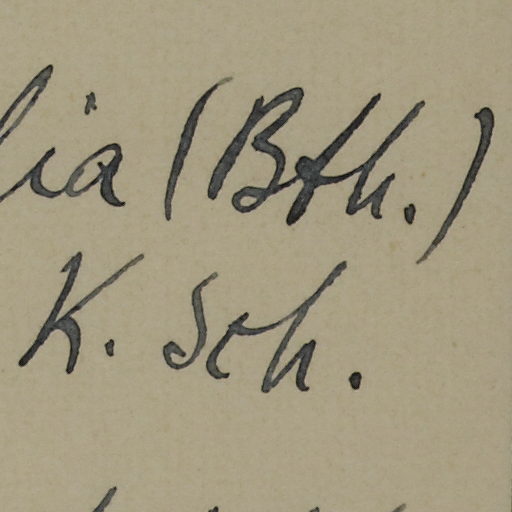 lia (Bth.)
K. Sch.